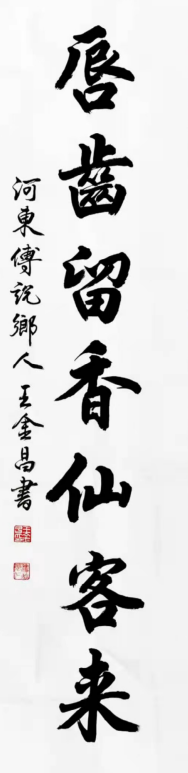 唇齒留香仙客来
河東傅説鄉人王金昌書